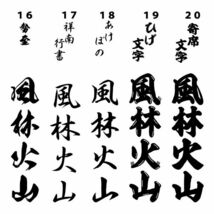 16
風林火山
17
祥南
行書
風林火山
18
あけ
ぼの
風林火山
19
ひげ
文字
風林火山
20
寄席
文字
風林火山